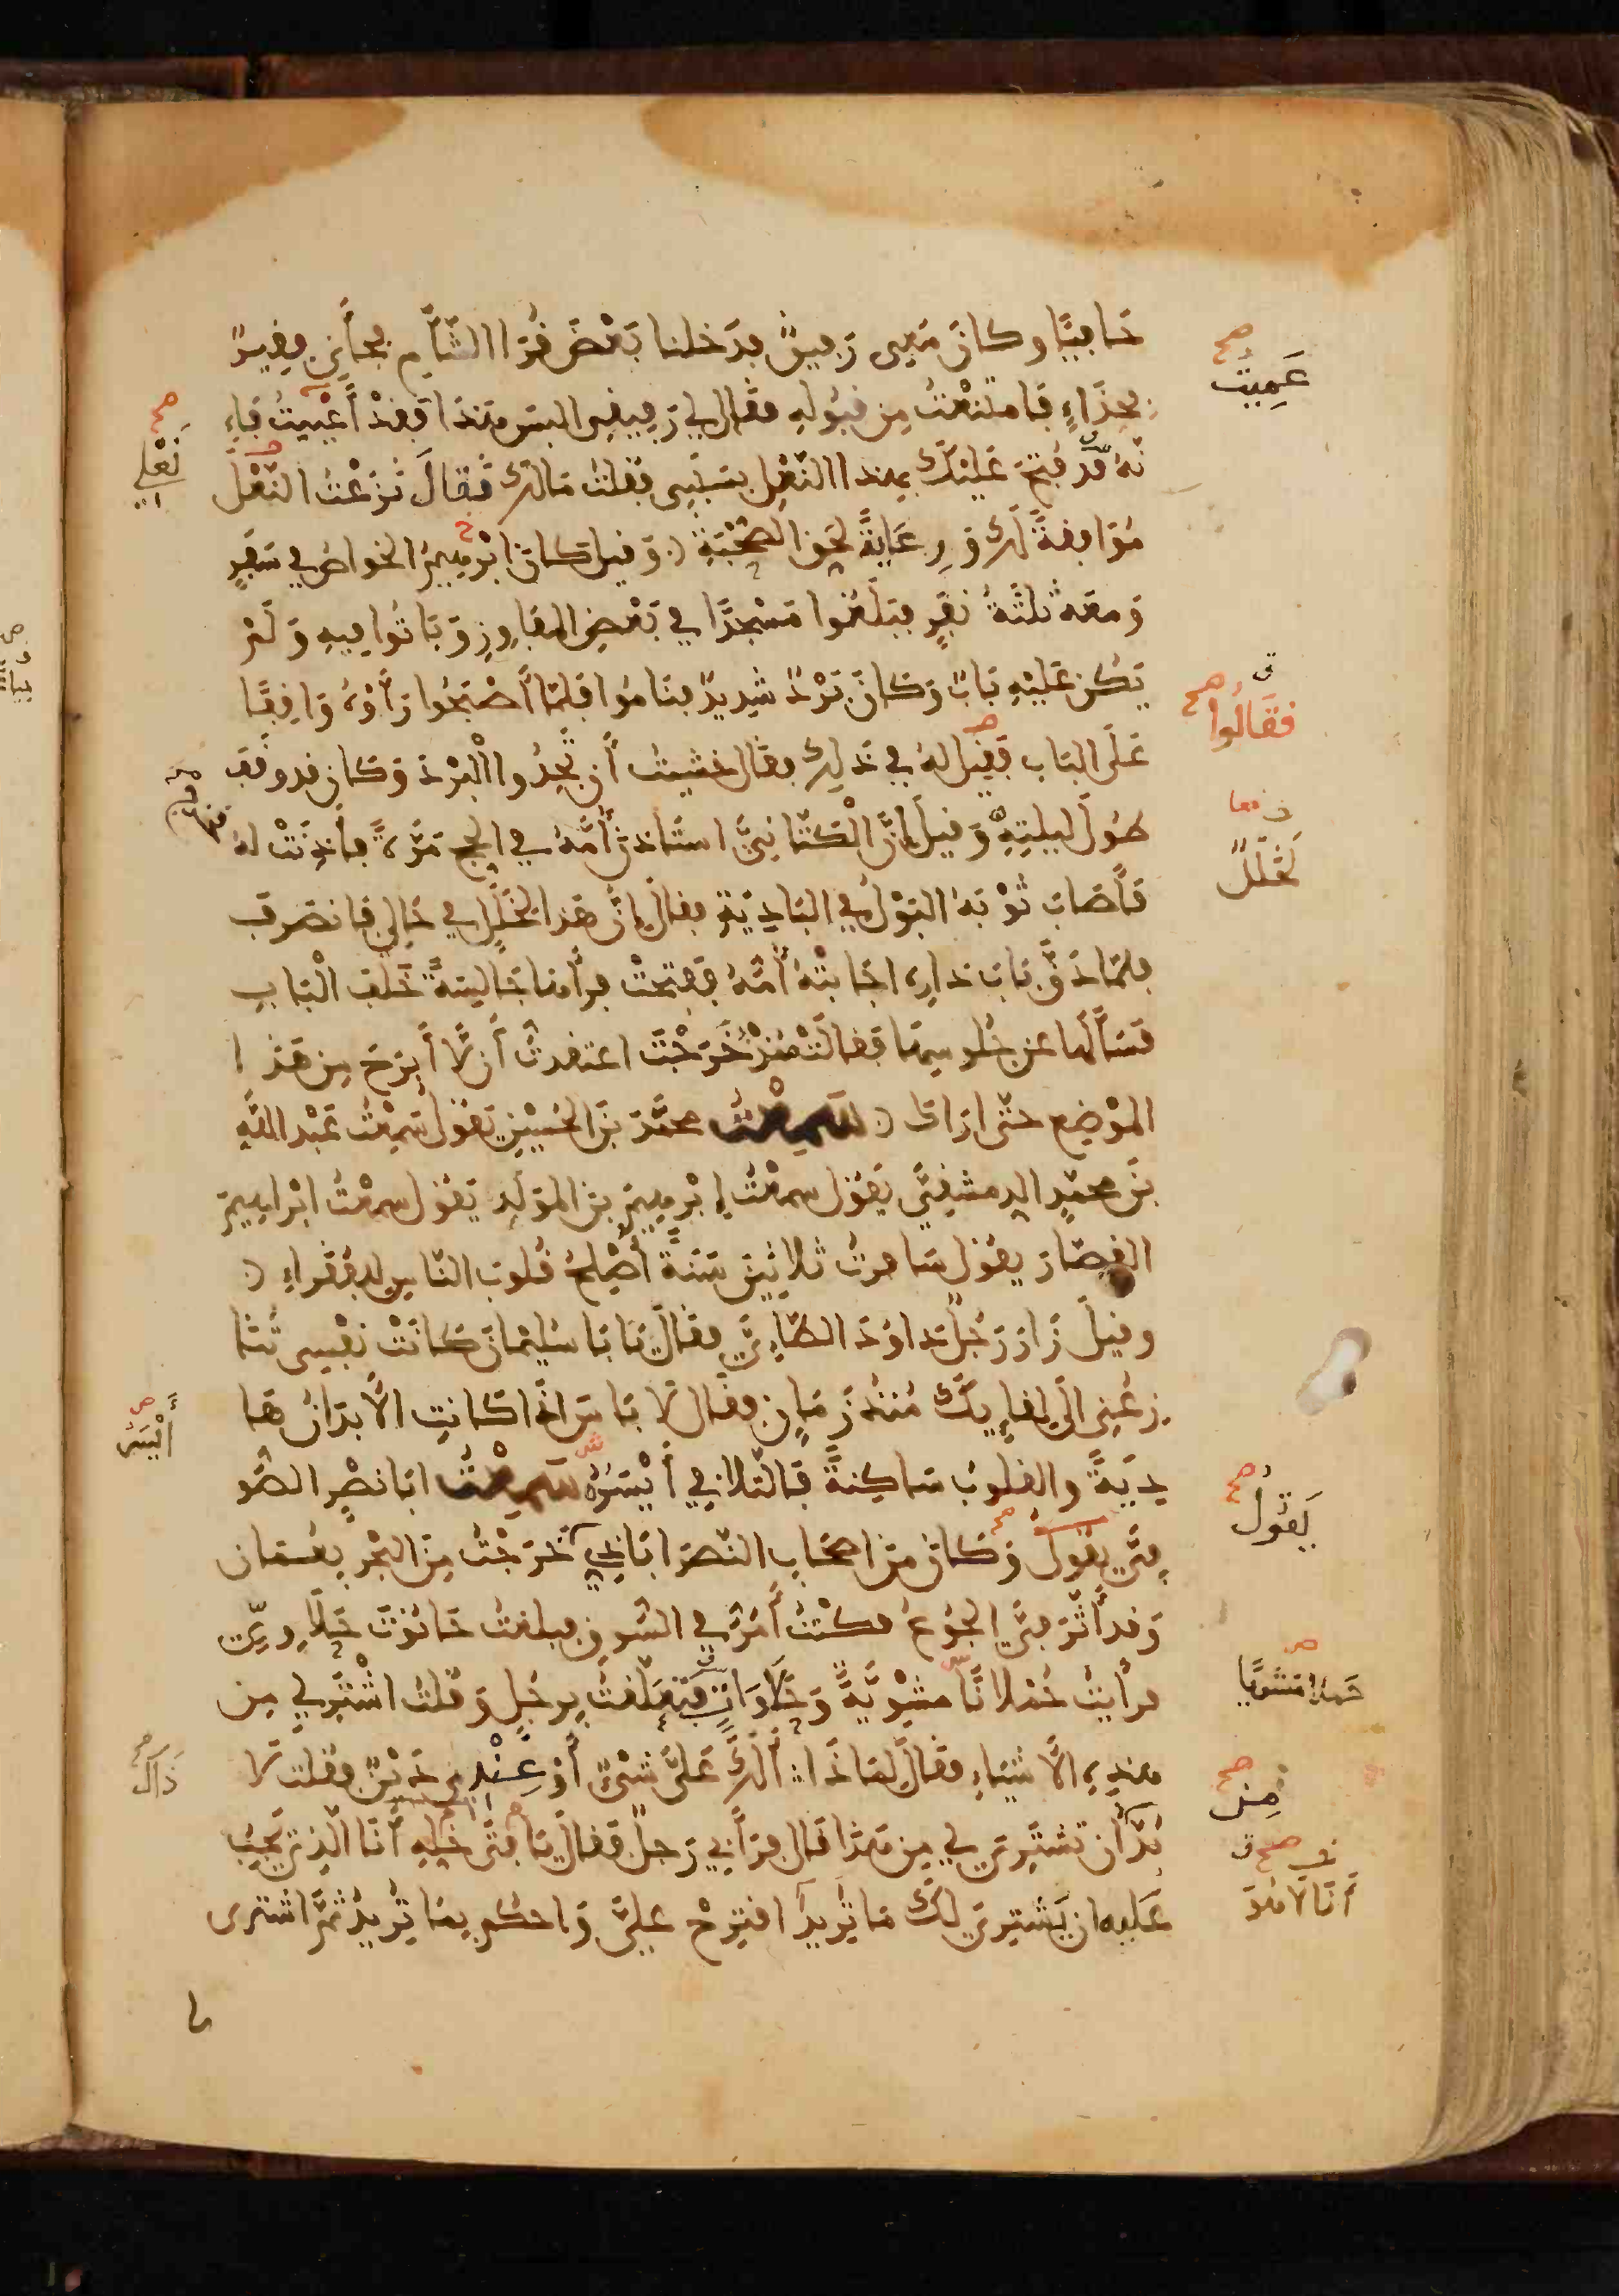 حَافِيًا وكانَ مَعِى رَفيقٌ فدَخلنا بَعْضَ قُرَا الشَّأْم فجأَنِى فقِيرٌ
بحِذَاءٍ فَامتنَعْتُ مِن قبُولِهِ فقَال لي رَفِيقِى البس هَذا فقَدْ أَعْيَيْتُ فَإِ
نَّهُ قَدْ فُتِحَ عَلَيْكَ بهذا النَّعْلِ بسَبَبِى فقلتُ مَالَكَ فقَالَ نَزَعْتُ النَّعْلَ
مُوَافقةً لَكَ وَرِعَايَةً لِحَقِّ الصُّحْبَةِ وَقيل كانَ إبْرهيمُ الخواصُ في سَفَرٍ
وَمعَه ثلثَةُ نَفَرٍ فبَلَغُوا مَسْجِدًا في بَعْضِ المفَاوِزِ وَبَاتُوا فِيهِ وَلَمْ
يَكُن عَلَيْهِ بَابٌ وَكَانَ بَرْدٌ شَدِيدٌ فنَامُوا فَلمَّا أَصْبَحُوا رَأَوْهُ وَاقِفًا
عَلَى البَاب فقِيل لهُ في ذَلِكَ فقال خشِيتُ أَن تَجِدُوا الْبَرْدَ وَكَان قد وقَف
طُولَ ليلتِهِ وَقيلَ إنَّ الْكَتَّانِىَّ استَاذنَ أُمَّهُ في الحج مَرَّةً فأَذِنَتْ لهُ
فَأَصَابَ ثَوْبَهُ البَوْلُ في البَادِيَةِ فقالَ إنَّ هَذا لخَلَلٌ في حَالِي فَانصَرَف
فلمَّا دَقَّ بَابَ دَارِهِ اجَابتْهُ أُمُّهُ ففَتحَتْ فرأَهَا جَالِسَةً خَلفَ الْبَابِ
فَسَأَلهَا عن جُلوسِهَا فقَالَتْ مُنْذُ خَرَجْتَ اعتقدتُّ أن لَّا أَبْرَحَ مِن هَذا
المَوْضِع حَتَّى ارَاكَ سَمِعْتُ محمَّدَ بْنَ الحُسَيْنِ يَقُول سَمِعْتُ عَبْدَ اللَّهِ
بْنَ محمّدٍ الدِمشقِىَّ يَقُول سمعْتُ إبْرهِيمَ بن المَوَلَّدِ يَقُول سمعْتُ ابْراهِيمَ
القصّارَ يقُول سَافرتُ ثلاثِينَ سَنَةً أُصْلِحُ قُلوبَ النّاسِ للفُقَراءِ
وقيلَ زَارَ رَجُلٌ دَاوُدَ الطَّاءِىَّ فقالَ يَابَا سُليْمانَ كانَتْ نَفْسِى تُنَا
زِعُنِى الَى لِقاءِيكَ مُنْذُ زَمَانٍ فقال لَا بَاسَ اذَا كانتِ الأَبْدَانُ هَا
دِيَةً والقلوبُ سَاكِنةً فَالتَّلاقِي أَيْسَرُ سَمِعْتُ ابَا نصْرٍ الصُّو
فِىَّ يَقُولُ وَكانَ مِنَ اصحَابِ النَّصرَابَاذِي خَرَجْتُ مِنَ البَحْرِ بعُمَان
وَقد أَثَّرَ فِىَّ الجُوعُ فكُنْتُ أَمُرُّ في السُّوقِ فبلغتُ حَانُوتَ حَلَاوِىّ
فرأيتُ حُمْلَانًا مَشْوِيَّةً وَحَلَاوَاتٍ فَتَعَلَّقْتُ برَجُلٍ وَقلتُ اشْتَرِ لي مِن
هذِهِ الأَشيَاءِ فقَالَ لمَاذَا أَلَكَ عَلَىَّ شَىْءٌ أَوْ عِنْدِى دَيْنٌ فقُلتُ لَا
بُدَّ أَن تَشتَرِىَ لِي مِن هَذا قَال فرَأَنِي رَجلٌ فقَالَ يَا فتَى خَلِّهِ أَنَا الَّذِى يَجِبُ
عَليه ان يَشترِىَ لَكَ مَا تُرِيدُ اقترِحْ علىَّ وَاحكُم بِمَا تُرِيدُ ثمَّ اشترى
عَمِيتُ
نَعْلِي
فقَالُوا
لَخَلَلٌ
أَيْسَرُ
يَقُولُ
حَملا مَشويا
ذَاكَ
مِن
أَنَا لَا هُوَ